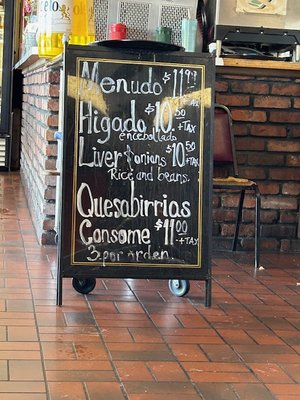 Menudo $11.99
Higado $10.50 +TAX
encebollado
Liver & onions $10.50 +TAX
Rice and beans.
Quesabirrias
Consome $11.00 +TAX
3 por orden.